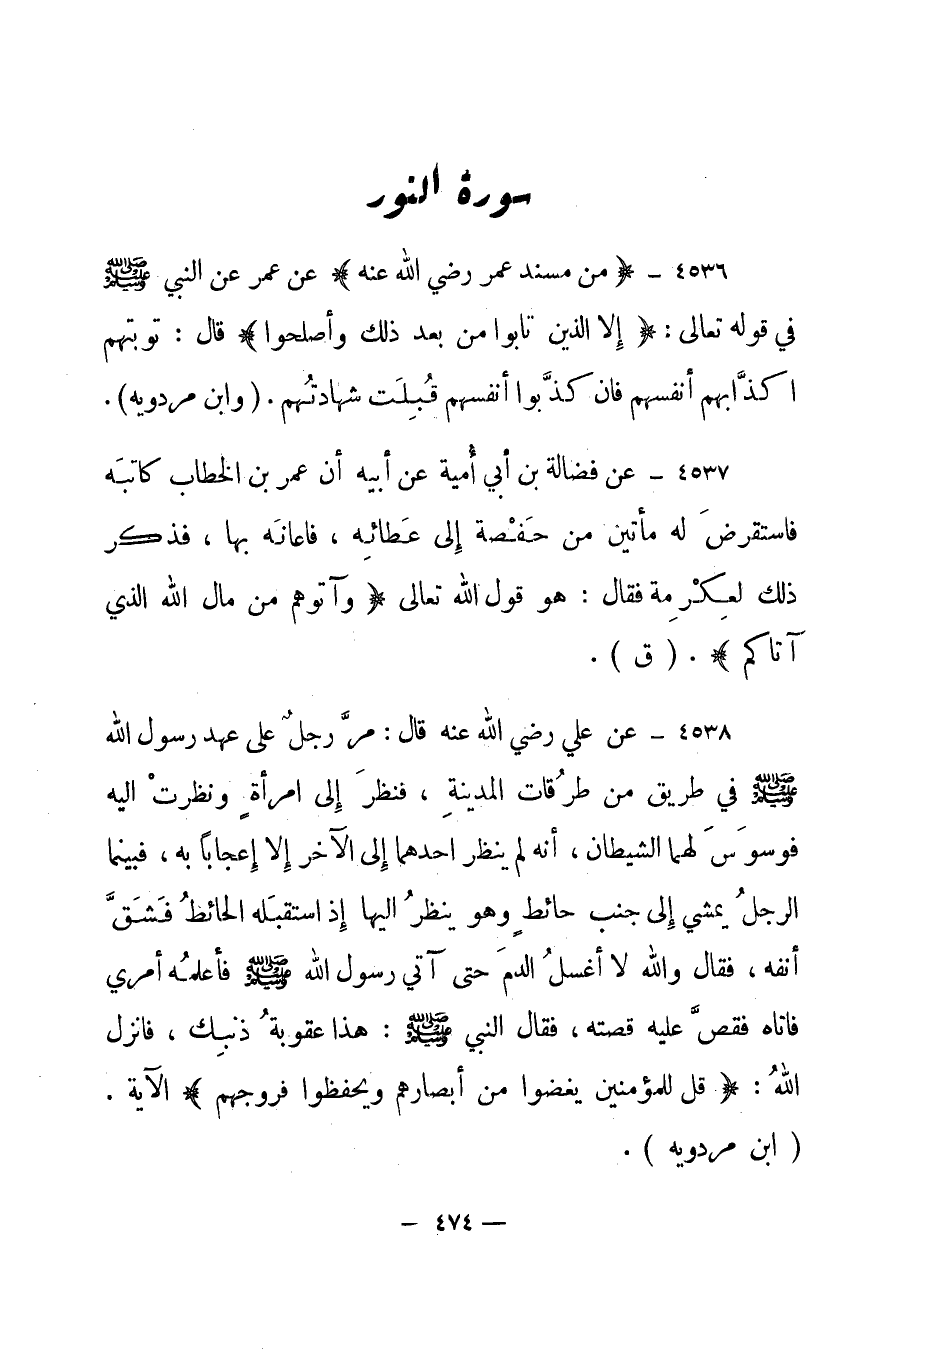 سورة النور
٤٥٣٦ - ﴿ من مسند عمر رضي الله عنه ﴾ عن عمر عن النبي ﷺ
في قوله تعالى : ﴿ إلا الذين تابوا من بعد ذلك وأصلحوا ﴾ قال : توبتهم
اكذَّابهم أنفسهم فان كذَّبوا أنفسهم قُبِلَت شهادتُهم . ( وابن مردويه ) .
٤٥٣٧ - عن فضالة بن أبي أُمية عن أبيه أن عمر بن الخطاب كاتبَه
فاستقرضَ له مأتين من حَفْصة إلى عَطائِه ، فاعانَه بها ، فذكر
ذلك لعِكْرِمة فقال : هو قول الله تعالى ﴿ وآتوهم من مال الله الذي
آتاكم ﴾ . ( ق ) .
٤٥٣٨ - عن علي رضي الله عنه قال : مرَّ رجلٌ على عهد رسول الله
ﷺ في طريق من طرُقات المدينةِ ، فنظرَ إلى امرأةٍ ونظرتْ اليه
فوسوَسَ لهما الشيطان ، أنه لم ينظر احدهما إلى الآخر إلا إعجاباً به ، فبينما
الرجلُ يمشي إلى جنب حائطٍ وهو ينظرُ اليها إذ استقبَله الحائطُ فَشَقَّ
أنفه ، فقال والله لا أغسلُ الدمَ حتى آتي رسول الله ﷺ فأعلمُه أمري
فاتاه فقصَّ عليه قصته ، فقال النبي ﷺ : هذا عقوبةُ ذنبِك ، فانزل
اللهُ : ﴿ قل للمؤمنين يغضوا من أبصارهم ويحفظوا فروجهم ﴾ الآية .
( ابن مردويه ) .
— ٤٧٤ -